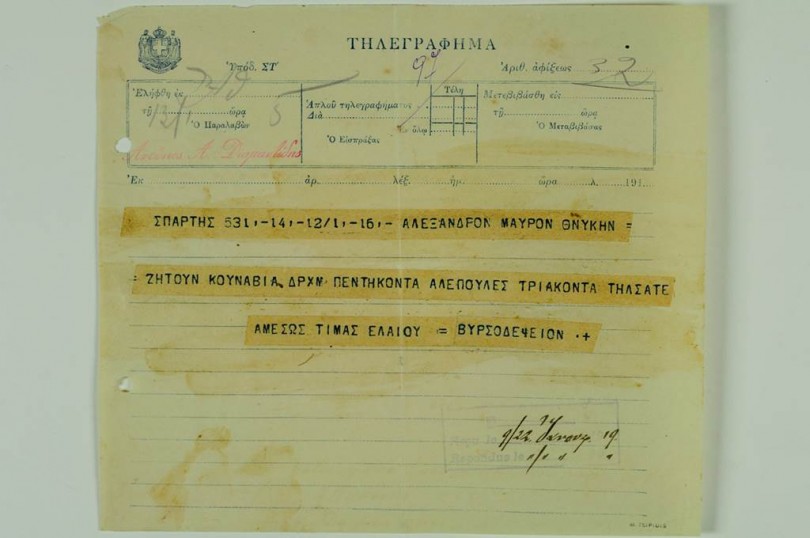 ΤΗΛΕΓΡΑΦΗΜΑ
Ὑπόδ. ΣΤ′
Ἀριθ. ἀφίξεως 32
Ἐλήφθη ἐκ
τῇ 12/1 ὥρα 5
Ὁ Παραλαβὼν
Τέλη
Ἁπλοῦ τηλεγραφήματος
Διὰ
ἐν ὅλῳ
Ὁ Εἰσπράξας
Μετεβιβάσθη εἰς
τῇ ὥρα
Ὁ Μεταβιβάσας
Ἐκ ἀρ. λέξ. ἡμ. ὥρα λ. 191
ΣΠΑΡΤΗΣ 531,-14,-12/1,-16,- ΑΛΕΞΑΝΔΡΟΝ ΜΑΥΡΟΝ ΘΝΥΚΗΝ =
= ΖΗΤΟΥΝ ΚΟΥΝΑΒΙΑ ΔΡΧΜ ΠΕΝΤΗΚΟΝΤΑ ΑΛΕΠΟΥΛΕΣ ΤΡΙΑΚΟΝΤΑ ΤΗΛΣΑΤΕ
ΑΜΕΣΩΣ ΤΙΜΑΣ ΕΛΑΙΟΥ = ΒΥΡΣΟΔΕΨΕΙΟΝ .+
9/22 19